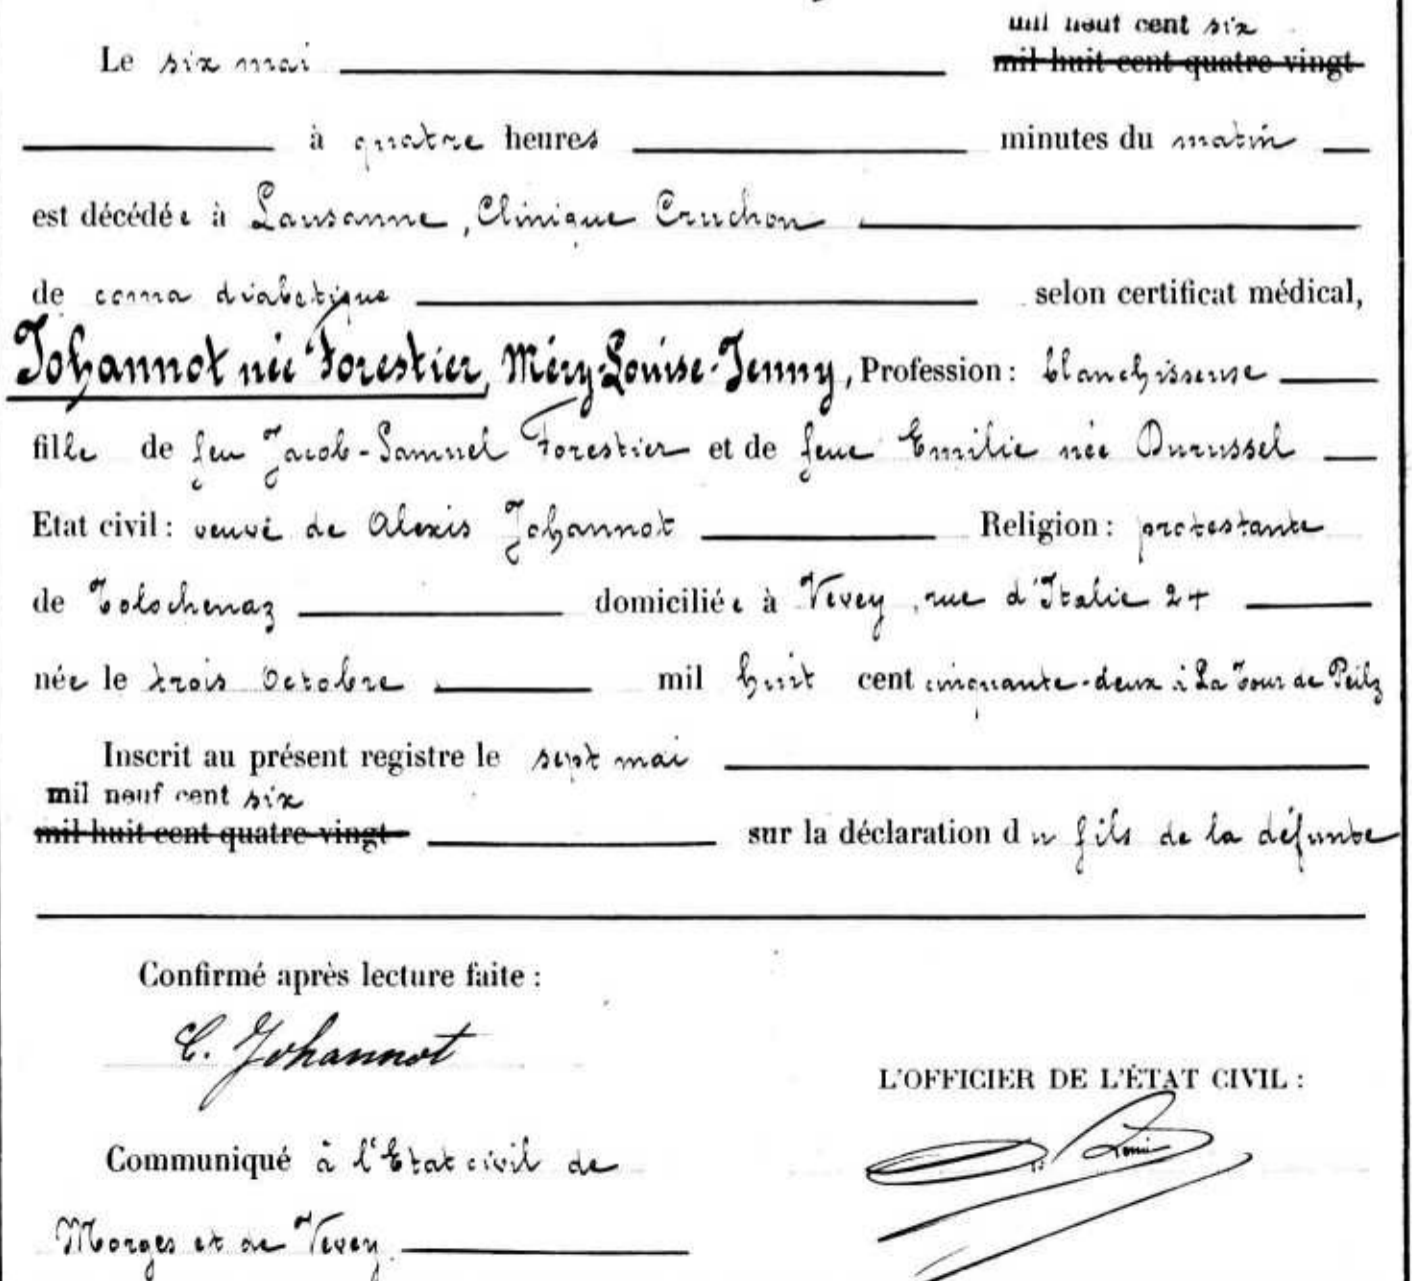 mil neuf cent six
Le six mai mil huit cent quatre-vingt
à quatre heures minutes du matin
est décédée à Lausanne, Clinique Cruchon
de coma diabetique selon certificat médical,
Johannot née Forestier, Méry-Louise-Jenny, Profession : blanchisseuse
fille de feu Jacob-Samuel Forestier et de feue Emilie née Durussel
Etat civil : veuve de Alexis Johannot Religion : protestante
de Tolochenaz domiciliée à Vevey, rue d'Italie 24
née le trois Octobre mil huit cent cinquante-deux à La Tour de Peilz
Inscrit au présent registre le sept mai
mil neuf cent six
mil huit cent quatre-vingt sur la déclaration du fils de la défunte
Confirmé après lecture faite :
C. Johannot
L'OFFICIER DE L'ÉTAT CIVIL :
Communiqué à l'Etat civil de
Morges et de Vevey.